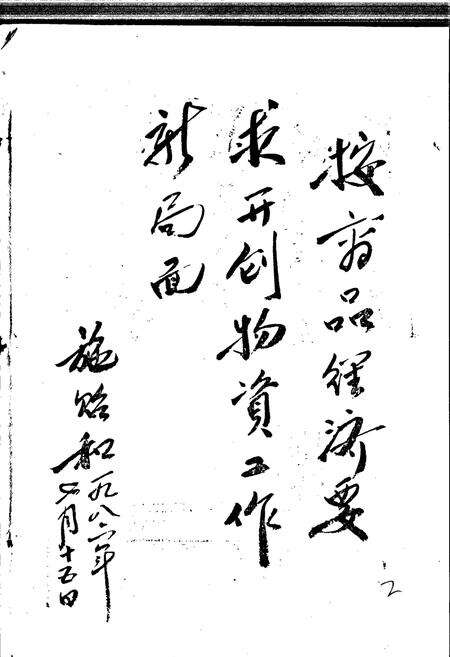 按商品经济要
求开创物資工作
新局面
施贻和一九八六年
七月十五日
2